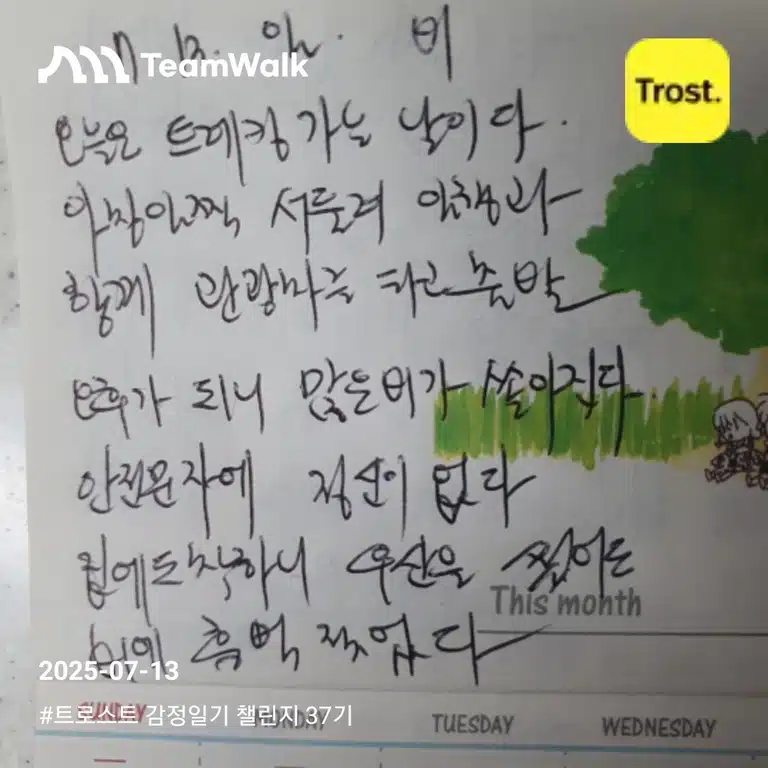 7. 13. 일. 비
TeamWalk
Trost.
오늘은 트레킹 가는 날이다.
아침일찍 서둘러 일행과
함께 관광버스를 타고 출발
오후가 되니 많은비가 쏟아진다.
안전문자에 정신이 없다
집에도착하니 우산을 썼어도
비에 흠뻑 젖었다
This month
2025-07-13
#트로스트 감정일기 챌린지 37기
SUNDAY MONDAY TUESDAY WEDNESDAY